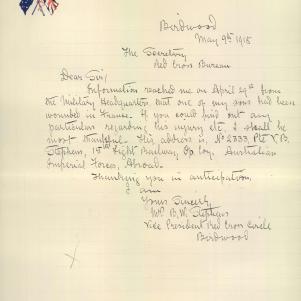 Birdwood
May 9th 1918
The Secretary
Red Cross Bureau
Dear Sir/
Information reached me on April 29th from
the Military Headquarters that one of my sons had been
wounded in France. If you could find out any
particulars regarding his injury etc, I shall be
most thankful. His address is, No 2333, Pte V. B.
Stephens, 15th Light Railway Op Coy, Australian
Imperial Forces, Abroad.
Thanking you in anticipation,
I am
Yours Sincerely
B. W. Stephens
Vice President Red Cross Circle
Birdwood